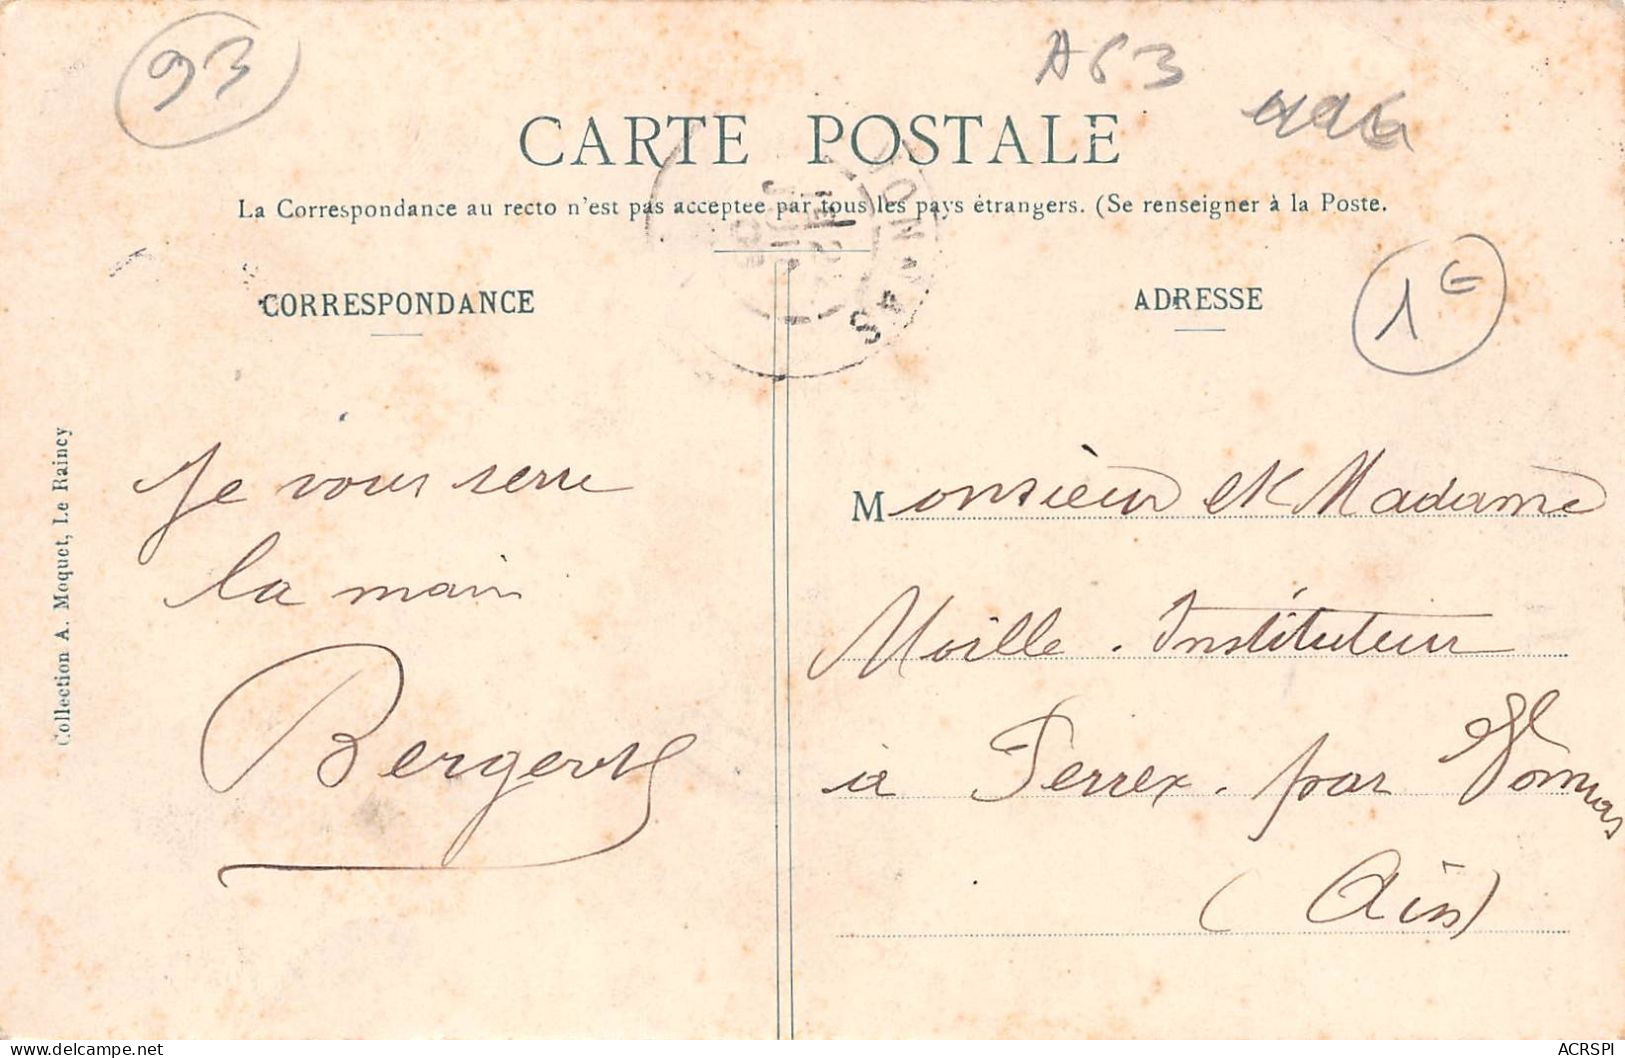 93
A63
CARTE POSTALE
La Correspondance au recto n'est pas acceptee par tous les pays étrangers. (Se renseigner à la Poste.
CORRESPONDANCE
ADRESSE
1€
Je vous serre
la main
Monsieur et Madame
Moille. Instituteur
à Perrex. par Vonnas
(Ain)
Collection A. Moquet, Le Raincy
delcampe.net
ACRSPI